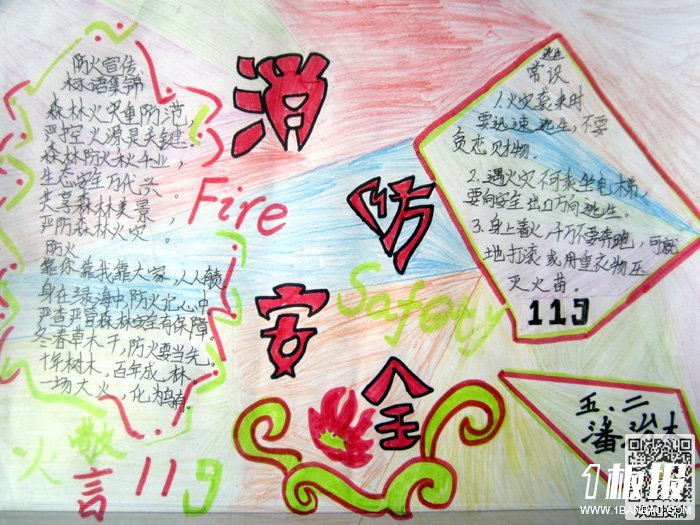 防火宣传
标语集锦
森林火灾重防范，
严控火源是关键。
森林防火秋千业，
生态安全万代兴。
共享森林美景，
严防森林火灾。
防火
靠你靠我靠大家，人人
身在绿海中，防火记心中
严查严管森林安全有保障。
冬春草木干，防火要当先。
十年树木，百年成林
一场大火，化为
火警
119
消防安全
Fire
Safety
逃生
常识
1.火灾袭来时
要迅速逃生，不要
贪恋财物。
2.遇火灾不可乘坐电梯，
要向安全出口方向逃生。
3.身上着火，千万不要奔跑，可就
地打滚或用重衣物压
灭火苗。
119
五.二
潘
1板报
WWW.1BANBAO.COM